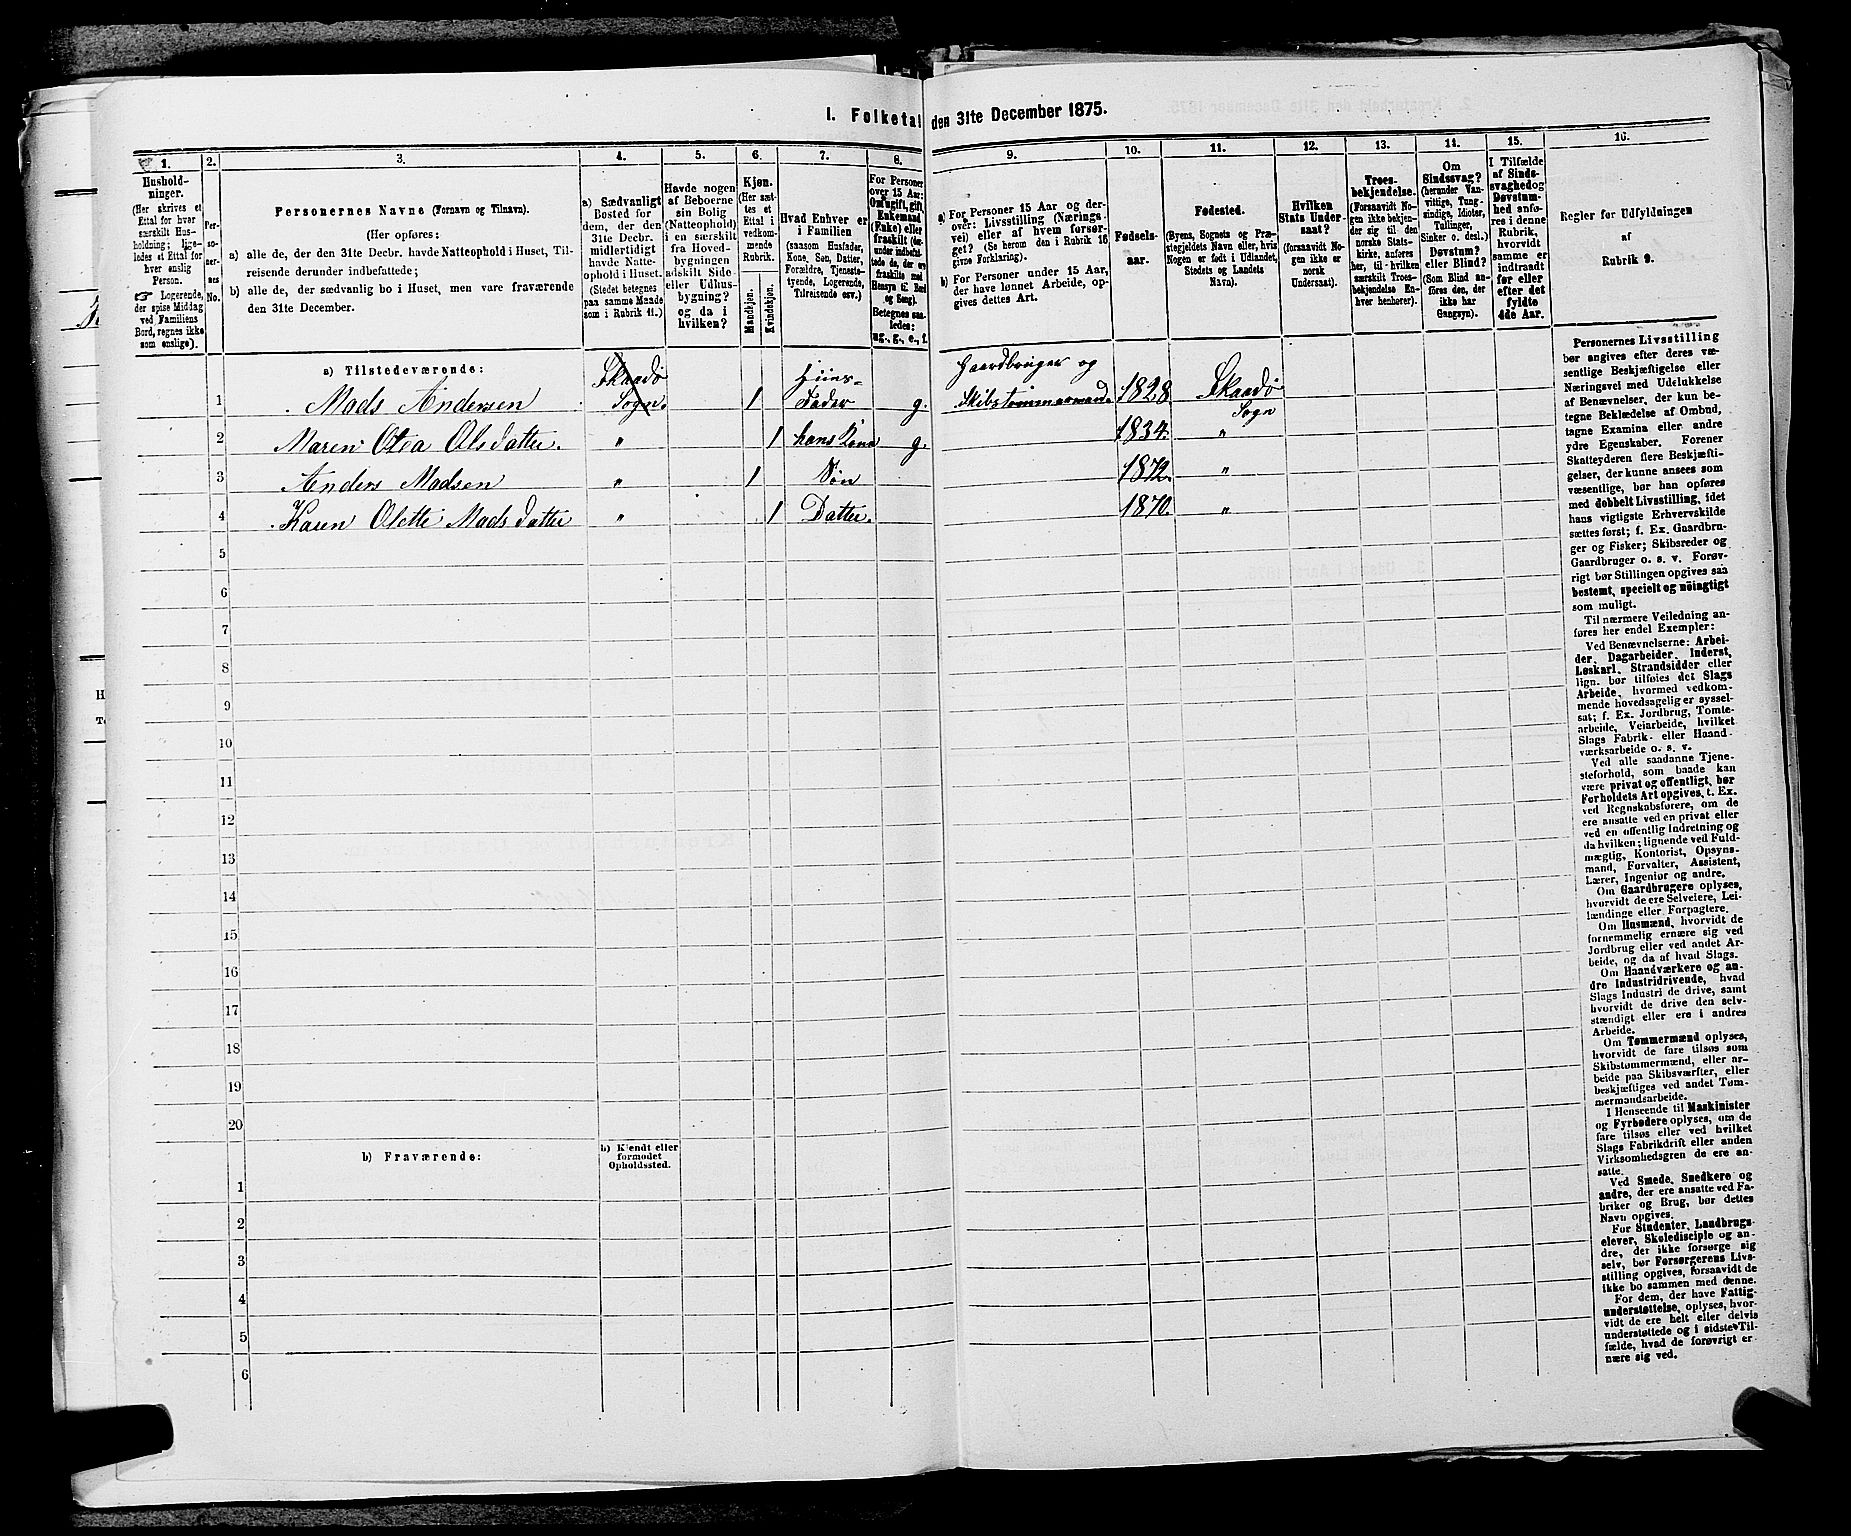 I. Folketal den 31te December 1875.
1.
2.
3.
4.
5.
6.
7.
8.
9.
10.
11.
12.
13.
14.
15.
16.
Hushold-
ninger.
(Her skrives et
Ettal for hver
særskilt Hus-
holdning; lige-
ledes et Ettal for
hver enslig
Person.
☞ Logerende,
der spise Middag
ved Familiens
Bord, regnes ikke
som enslige).
Per-
so-
ner-
nes
No.
Personernes Navne (Fornavn og Tilnavn).
(Her opføres:
a) alle de, der den 31te Decbr. havde Natteophold i Huset, Til-
reisende derunder indbefattede;
b) alle de, der sædvanlig bo i Huset, men vare fraværende
den 31te December.
a) Sædvanligt
Bosted for
dem, der den
31te Decbr.
midlertidigt
havde Natte-
ophold i Huset.
(Stedet betegnes
paa samme Maade
som i Rubrik 11.)
Havde nogen
af Beboerne
sin Bolig
(Natteophold)
i en særskilt
fra Hoved-
bygningen
adskilt Side-
eller Udhus-
bygning?
og da i
hvilken?
Kjøn.
(Her sæt-
tes et
Ettal i
vedkom-
mende
Rubrik.
Mandkjøn.
Kvindekjøn.
Hvad Enhver er
i Familien
(saasom Husfader,
Kone, Søn, Datter,
Forældre, Tjeneste-
tyende, Logerende,
Tilreisende osv.)
For Personer
over 15 Aar:
Om ugift, gift,
Enkemand
(Enke) eller
fraskilt (der-
under indbefat-
tede de, der ere
fraskilte med
Hensyn til Bord
og Seng).
Betegnes saa-
ledes:
ug., g., e., f.
a) For Personer 15 Aar og der-
over: Livsstilling (Nærings-
vei) eller af hvem forsør-
get? (Se herom den i Rubrik 16
givne Forklaring).
b) For Personer under 15 Aar,
der have lønnet Arbeide, op-
gives dettes Art.
Fødsels-
aar.
Fødested.
(Byens, Sognets og Præ-
stegjeldets Navn eller, hvis
Nogen er født i Udlandet,
Stedets og Landets
Navn).
Hvilken
Stats Under-
saat?
(forsaavidt No-
gen ikke er
norsk
Undersaat).
Troes-
bekjendelse.
(Forsaavidt No-
gen ikke bekjen-
der sig til den
norske Stats-
kirke, anføres
her, til hvilken
særskilt Troes-
bekjendelse En-
hver henhører).
Om
Sindssvag?
(herunder Van-
vittige, Tung-
sindige, Idioter,
Tullinger,
Sinker o. desl.)
Døvstum?
eller Blind?
(Som Blind an-
føres den, der
ikke har
Gangsyn).
I Tilfælde
af Sinds-
svaghed og
Døvstum-
hed anfø-
res i denne
Rubrik,
hvorvidt
samme er
indtraadt
før eller
efter det
fyldte
4de Aar.
Regler for Udfyldningen
af
Rubrik 9.
a) Tilstedeværende:
1 Mads Andersen Skaadø Sogn. 1 Huus-Fader g. Gaardbruger og Skibstømmermand. 1828. Skaadø Sogn
2 Maren Olea Olsdatter. " 1 hans Kone g. 1834. "
3 Anders Madsen " 1 Søn 1872. "
4 Karen Olette Madsdatter " 1 Datter. 1870. "
5
6
7
8
9
10
11
12
13
14
15
16
17
18
19
20
b) Fraværende:
b) Kjendt eller
formodet
Opholdssted.
1
2
3
4
5
6
Personernes Livsstilling
bør angives efter deres væ-
sentlige Beskjæftigelse eller
Næringsvei med Udelukkelse
af Benævnelser, der kun be-
tegne Beklædelse af Ombud,
tagne Examina eller andre
ydre Egenskaber. Forener
Skatteyderen flere Beskjæfti-
gelser, der kunne ansees som
væsentlige, bør han opføres
med dobbelt Livsstilling, idet
hans vigtigste Erhvervskilde
sættes først; f. Ex. Gaardbru-
ger og Fisker; Skibsreder og
Gaardbruger o. s. v. Forøv-
rigt bør Stillingen opgives saa
bestemt, specielt og nöiagtigt
som muligt.
Til nærmere Veiledning an-
føres her endel Exempler:
Ved Benævnelserne: Arbei-
der, Dagarbeider, Inderst,
Løskarl, Strandsidder eller
lign. bør tilføies det Slags
Arbeide, hvormed vedkom-
mende hovedsagelig er syssel-
sat; f. Ex. Jordbrug, Tomte-
arbeide, Veiarbeide, hvilket
Slags Fabrik- eller Haand-
værksarbeide o. s. v.
Ved alle saadanne Tjene-
steforhold, som baade kan
være privat og offentligt, bør
Forholdets Art opgives, t. Ex.
ved Regnskabsførere, om de
ere ansatte ved en privat eller
ved en offentlig Indretning og
da hvilken; lignende ved Fuld-
mægtig, Kontorist, Opsyns-
mand, Forvalter, Assistent,
Lærer, Ingeniør og andre.
Om Gaardbrugere oplyses,
hvorvidt de ere Selveiere, Lei-
lændinge eller Forpagtere.
Om Husmænd, hvorvidt de
fornemmelig ernære sig ved
Jordbrug eller ved andet Ar-
beide, og da af hvad Slags.
Om Haandværkere og an-
dre Industridrivende, hvad
Slags Industri de drive, samt
hvorvidt de drive den selv-
stændigt eller ere i andres
Arbeide.
Om Tømmermænd oplyses,
hvorvidt de fare tilsøs som
Skibstømmermænd, eller ar-
beide paa Skibsværfter, eller
beskjæftiges ved andet Tøm-
mermandsarbeide.
I Henseende til Maskinister
og Fyrbødere oplyses, om de
fare tilsøs eller ved hvilket
Slags Fabrikdrift eller anden
Virksomhedsgren de ere an-
satte.
Ved Smede, Snedkere og
andre, der ere ansatte ved Fa-
briker og Brug, bør dettes
Navn opgives.
For Studenter, Landbrugs-
elever, Skoledisciple og an-
dre, der ikke forsørge sig
selv, bør Forsørgerens Livs-
stilling opgives, forsaavidt de
ikke bo sammen med denne.
For dem, der have Fattig-
understøttelse, oplyses, hvor-
vidt de ere helt eller delvis
understøttede og i sidste Til-
fælde, hvad de forøvrigt er
nære sig ved.